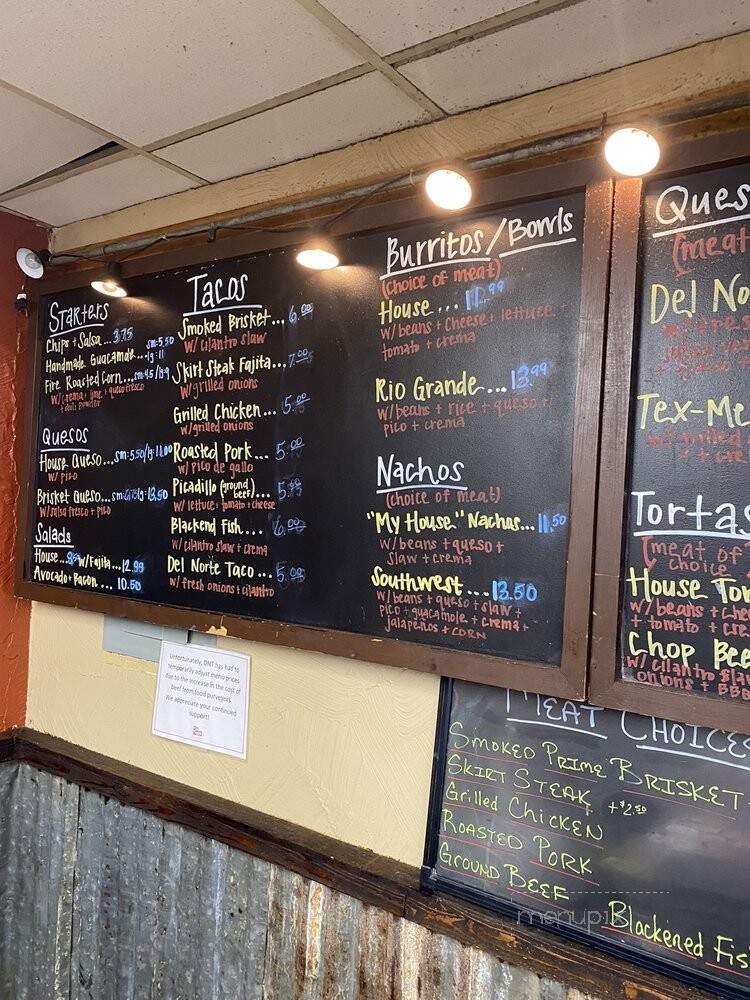 Starters
Chips + Salsa... 3.75
Handmade Guacamole... sm: 5.50 lg: 11
Fire Roasted Corn...
w/ crema + lime + queso fresco
+ chili powder
Quesos
House Queso... sm: 5.50/lg: 11.00
w/ pico
Brisket Queso...
w/ salsa fresca + pico
Salads
House... w/ Fajita... 12.99
Avocado + Bacon ... 10.50
Tacos
Smoked Brisket... 6.00
w/ cilantro slaw
Skirt Steak Fajita...
w/ grilled onions
Grilled Chicken...
w/ grilled onions
Roasted Pork...
w/ pico de gallo
Picadillo (ground beef)...
w/ lettuce + tomato + cheese
Blackend Fish...
w/ cilantro slaw + crema
Del Norte Taco...
w/ fresh onions + cilantro
Burritos/Bowls
(choice of meat)
House... 11.99
w/ beans + cheese + lettuce +
tomato + crema
Rio Grande... 13.99
w/ beans + rice + queso +
pico + crema
Nachos
(choice of meat)
"My House" Nachos... 11.50
w/ beans + queso +
slaw + crema
Southwest... 13.50
w/ beans + queso + slaw +
pico + guacamole + crema +
jalapeños + corn
Ques
(meat
Del No
Tex-Me
Tortas
(meat of
choice
House Tor
w/ beans + chee
+ tomato + cre
Chop Bee
w/ cilantro slaw
onions + BB
Unfortunately, DNT has had to
temporarily adjust menu prices
due to the increase in the cost of
beef from food purveyors.
We appreciate your continued
support!
Meat Choices
Smoked Prime Brisket
Skirt Steak +$2.50
Grilled Chicken
Roasted Pork
Ground Beef
Blackened Fis
menupix